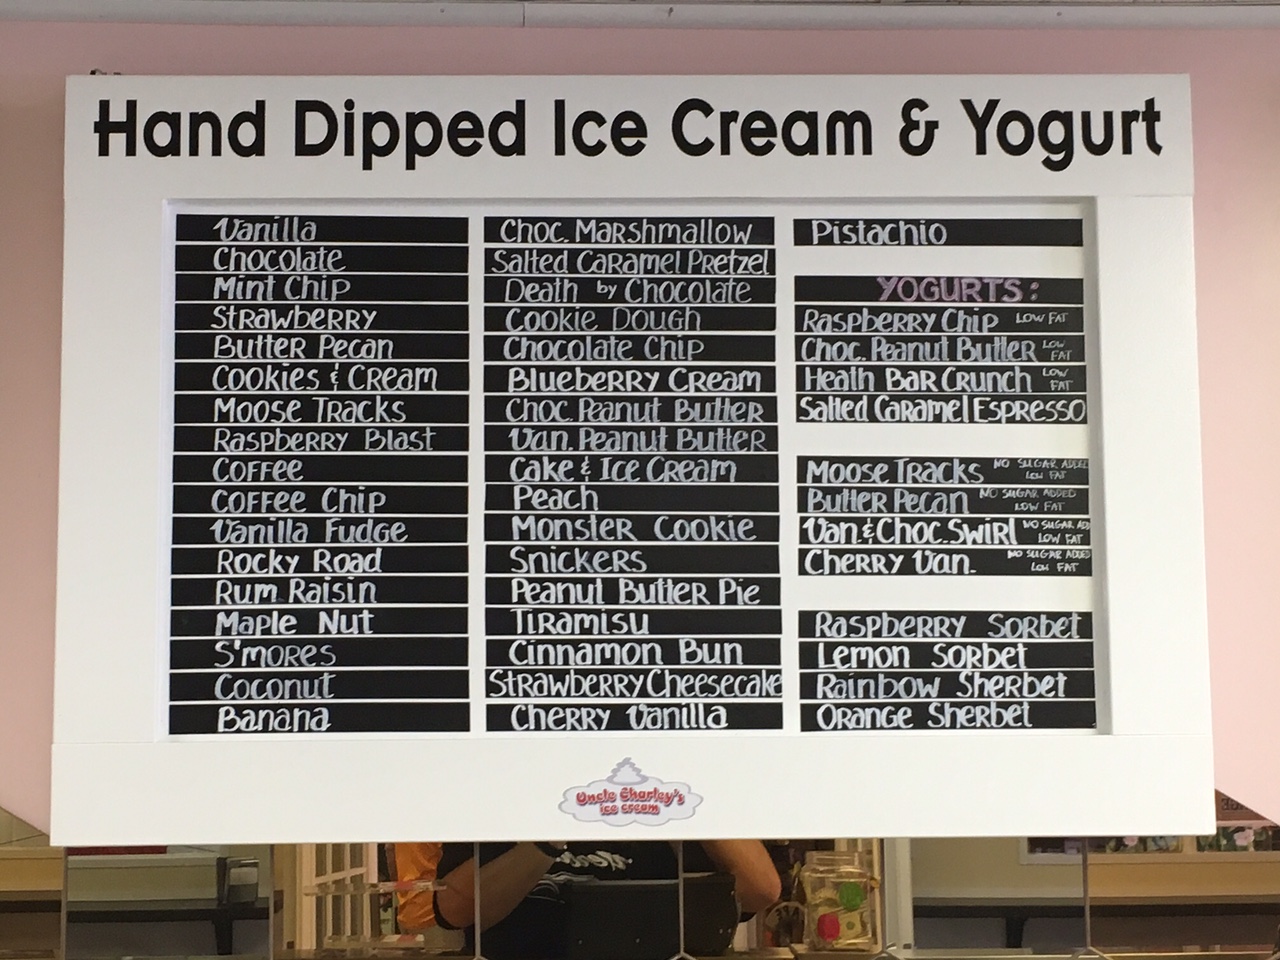 Hand Dipped Ice Cream & Yogurt
Vanilla
Chocolate
Mint Chip
Strawberry
Butter Pecan
Cookies & Cream
Moose Tracks
Raspberry Blast
Coffee
Coffee Chip
Vanilla Fudge
Rocky Road
Rum Raisin
Maple Nut
S'mores
Coconut
Banana
Choc. Marshmallow
Salted Caramel Pretzel
Death by Chocolate
Cookie Dough
Chocolate Chip
Blueberry Cream
Choc. Peanut Butter
Van. Peanut Butter
Cake & Ice Cream
Peach
Monster Cookie
Snickers
Peanut Butter Pie
Tiramisu
Cinnamon Bun
Strawberry Cheesecake
Cherry Vanilla
Pistachio
YOGURTS:
Raspberry Chip LOW FAT
Choc. Peanut Butter LOW FAT
Heath Bar Crunch LOW FAT
Salted Caramel Espresso
Moose Tracks NO SUGAR ADDED LOW FAT
Butter Pecan NO SUGAR ADDED LOW FAT
Van. & Choc. Swirl NO SUGAR ADD LOW FAT
Cherry Van. NO SUGAR ADDED LOW FAT
Raspberry Sorbet
Lemon Sorbet
Rainbow Sherbet
Orange Sherbet
Uncle Charley's
ice cream